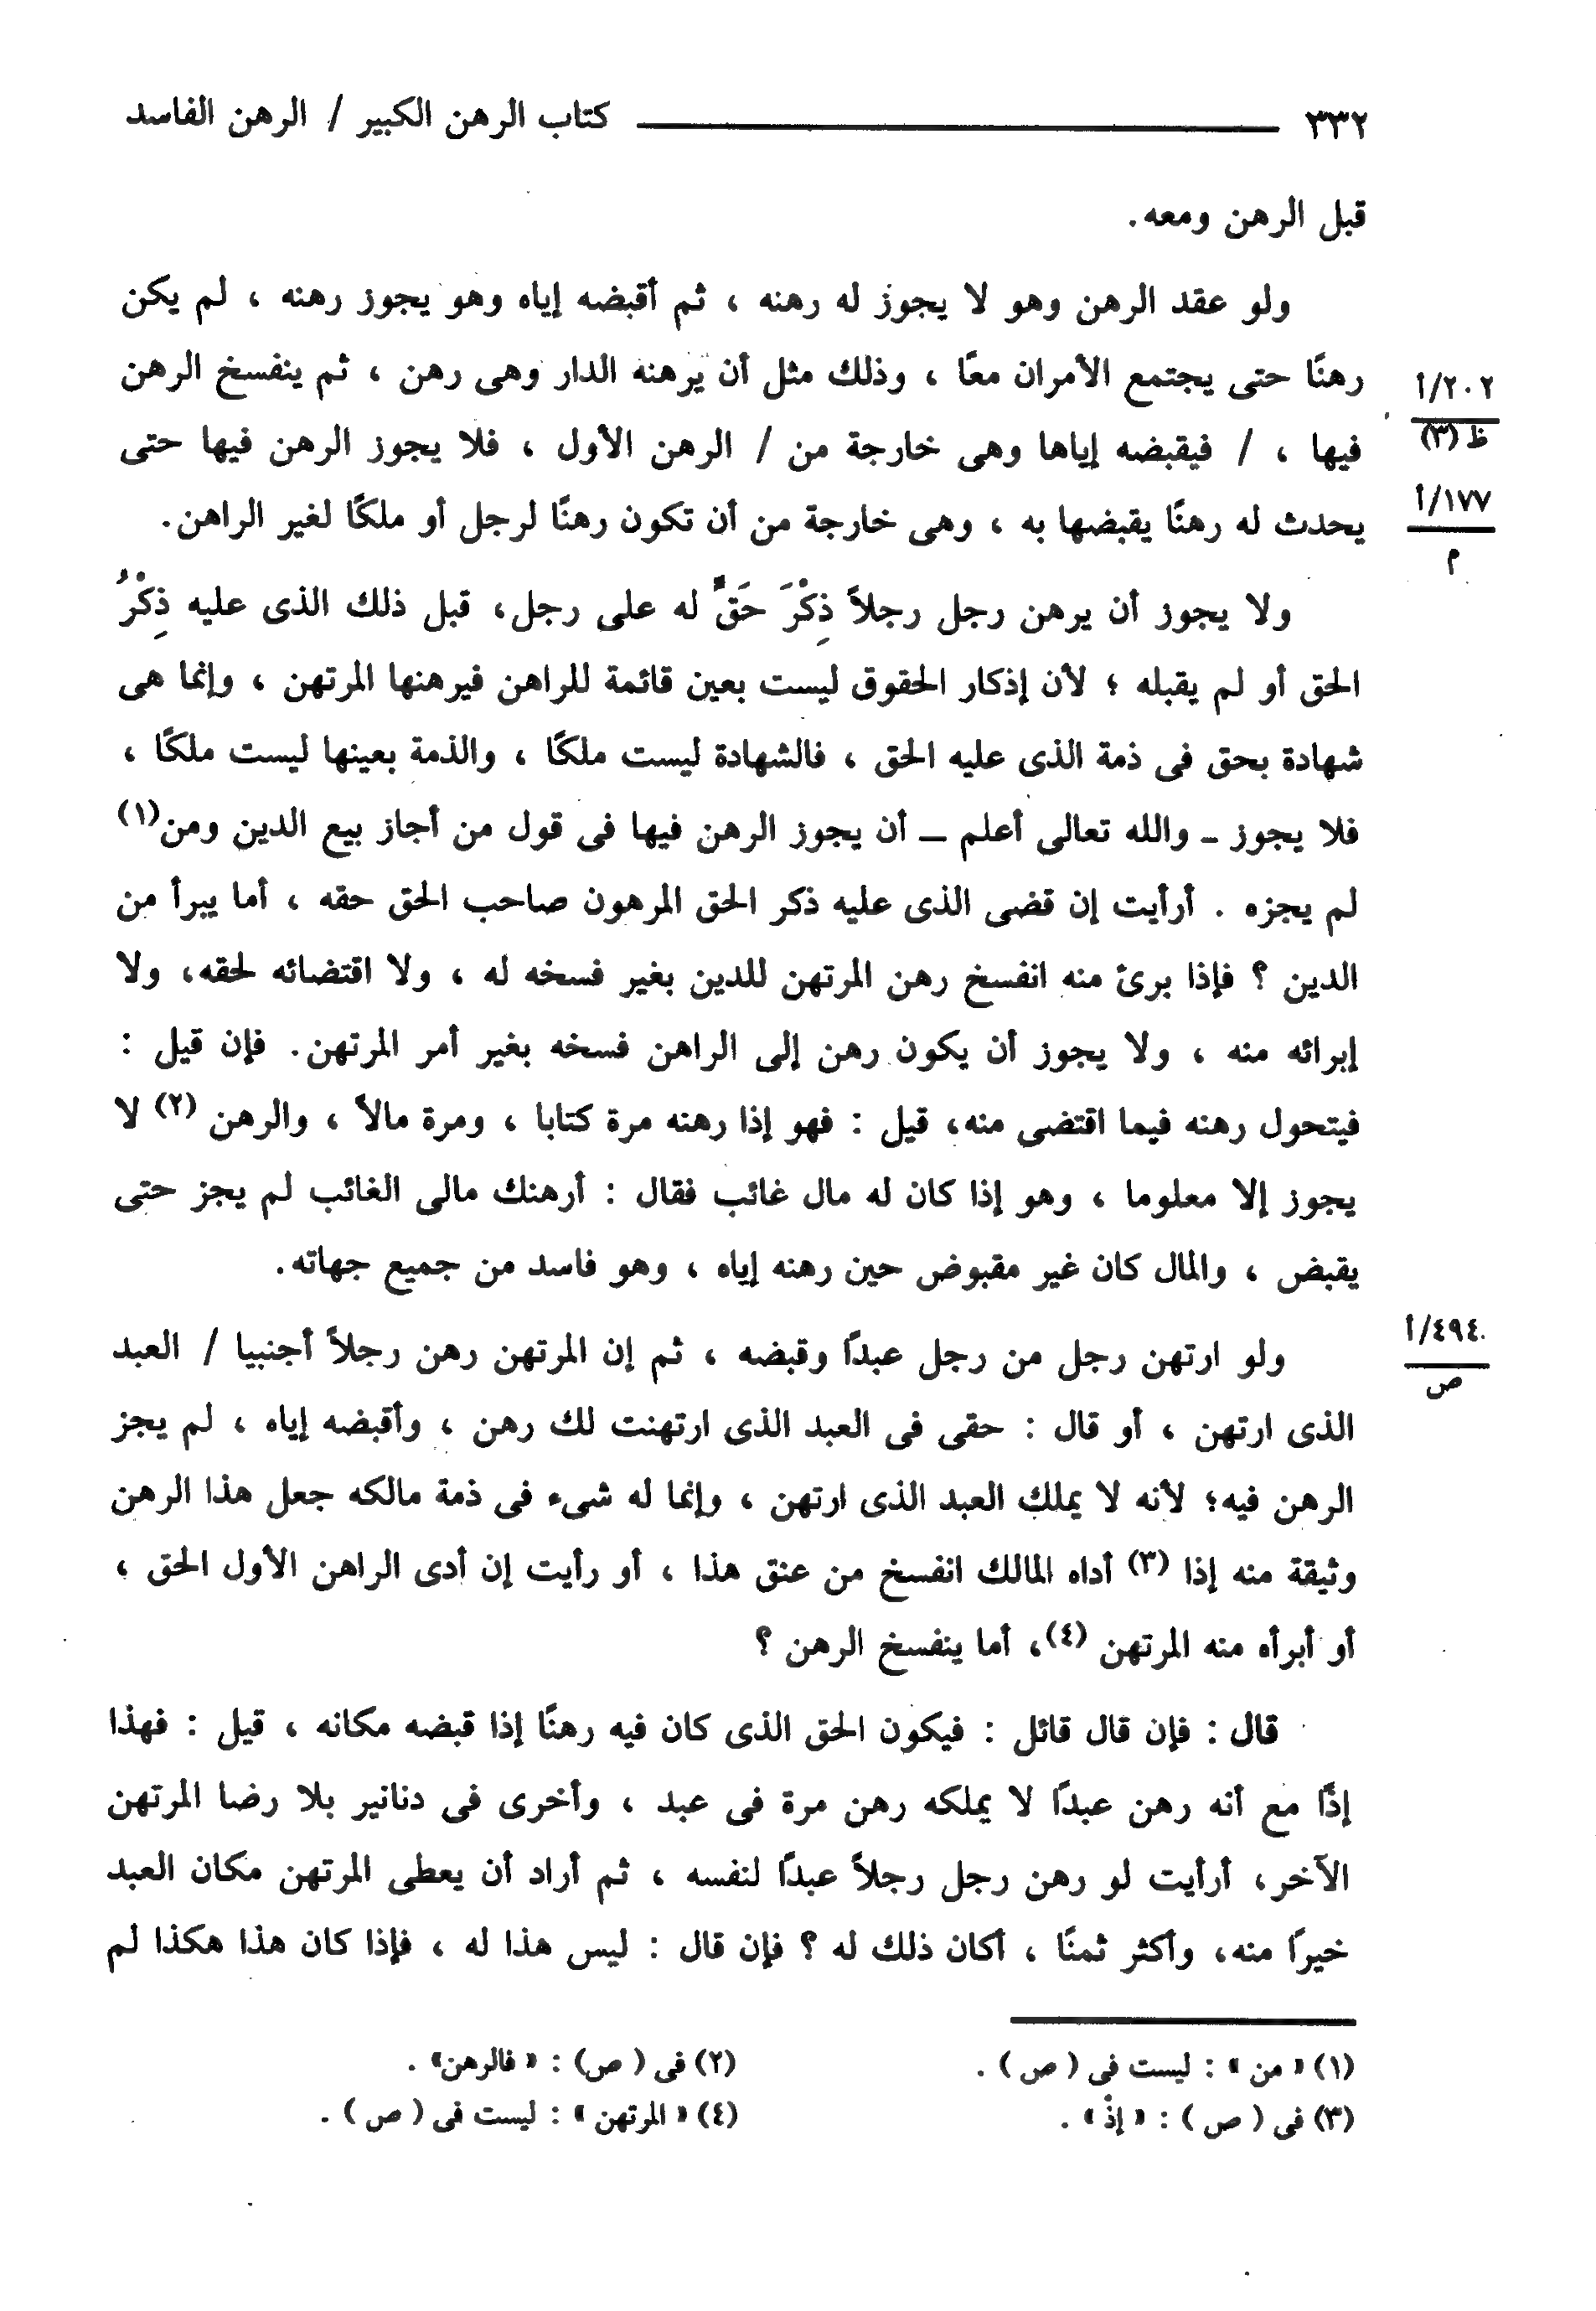 ٣٣٢ كتاب الرهن الكبير / الرهن الفاسد
قبل الرهن ومعه.
ولو عقد الرهن وهو لا يجوز له رهنه ، ثم أقبضه إياه وهو يجوز رهنه ، لم يكن
رهنًا حتى يجتمع الأمران معًا ، وذلك مثل أن يرهنه الدار وهى رهن ، ثم ينفسخ الرهن
٢٠٢/أ
ظ (٣)
فيها ، / فيقبضه إياها وهى خارجة من / الرهن الأول ، فلا يجوز الرهن فيها حتى
١٧٧/أ
م
يحدث له رهنًا يقبضها به ، وهى خارجة من أن تكون رهنًا لرجل أو ملكًا لغير الراهن.
ولا يجوز أن يرهن رجل رجلاً ذِكْرَ حَقٍّ له على رجل، قبل ذلك الذى عليه ذِكْرُ
الحق أو لم يقبله ؛ لأن إذكار الحقوق ليست بعين قائمة للراهن فيرهنها المرتهن ، وإنما هى
شهادة بحق فى ذمة الذى عليه الحق ، فالشهادة ليست ملكًا ، والذمة بعينها ليست ملكًا ،
فلا يجوز - والله تعالى أعلم - أن يجوز الرهن فيها فى قول من أجاز بيع الدين ومن(١)
لم يجزه . أرأيت إن قضى الذى عليه ذكر الحق المرهون صاحب الحق حقه ، أما يبرأ من
الدين ؟ فإذا برئ منه انفسخ رهن المرتهن للدين بغير فسخه له ، ولا اقتضائه لحقه، ولا
إبرائه منه ، ولا يجوز أن يكون رهن إلى الراهن فسخه بغير أمر المرتهن. فإن قيل :
فيتحول رهنه فيما اقتضى منه، قيل : فهو إذا رهنه مرة كتابا ، ومرة مالاً ، والرهن (٢) لا
يجوز إلا معلوما ، وهو إذا كان له مال غائب فقال : أرهنك مالى الغائب لم يجز حتى
يقبض ، والمال كان غير مقبوض حين رهنه إياه ، وهو فاسد من جميع جهاته.
ولو ارتهن رجل من رجل عبدًا وقبضه ، ثم إن المرتهن رهن رجلاً أجنبيا / العبد
٤٩٤/أ
ص
الذى ارتهن ، أو قال : حقى فى العبد الذى ارتهنت لك رهن ، وأقبضه إياه ، لم يجز
الرهن فيه؛ لأنه لا يملك العبد الذى ارتهن ، وإنما له شىء فى ذمة مالكه جعل هذا الرهن
وثيقة منه إذا (٣) أداه المالك انفسخ من عنق هذا ، أو رأيت إن أدى الراهن الأول الحق ،
أو أبرأه منه المرتهن (٤)، أما ينفسخ الرهن ؟
قال : فإن قال قائل : فيكون الحق الذى كان فيه رهنًا إذا قبضه مكانه ، قيل : فهذا
إذًا مع أنه رهن عبدًا لا يملكه رهن مرة فى عبد ، وأخرى فى دنانير بلا رضا المرتهن
الآخر، أرأيت لو رهن رجل رجلاً عبدًا لنفسه ، ثم أراد أن يعطى المرتهن مكان العبد
خيرًا منه، وأكثر ثمنًا ، أكان ذلك له ؟ فإن قال : ليس هذا له ، فإذا كان هذا هكذا لم
(١) « من » : ليست فى ( ص ) . (٢) فى ( ص) : « فالرهن» .
(٣) فى ( ص ) : « إذْ » . (٤) « المرتهن » : ليست فى ( ص ) .